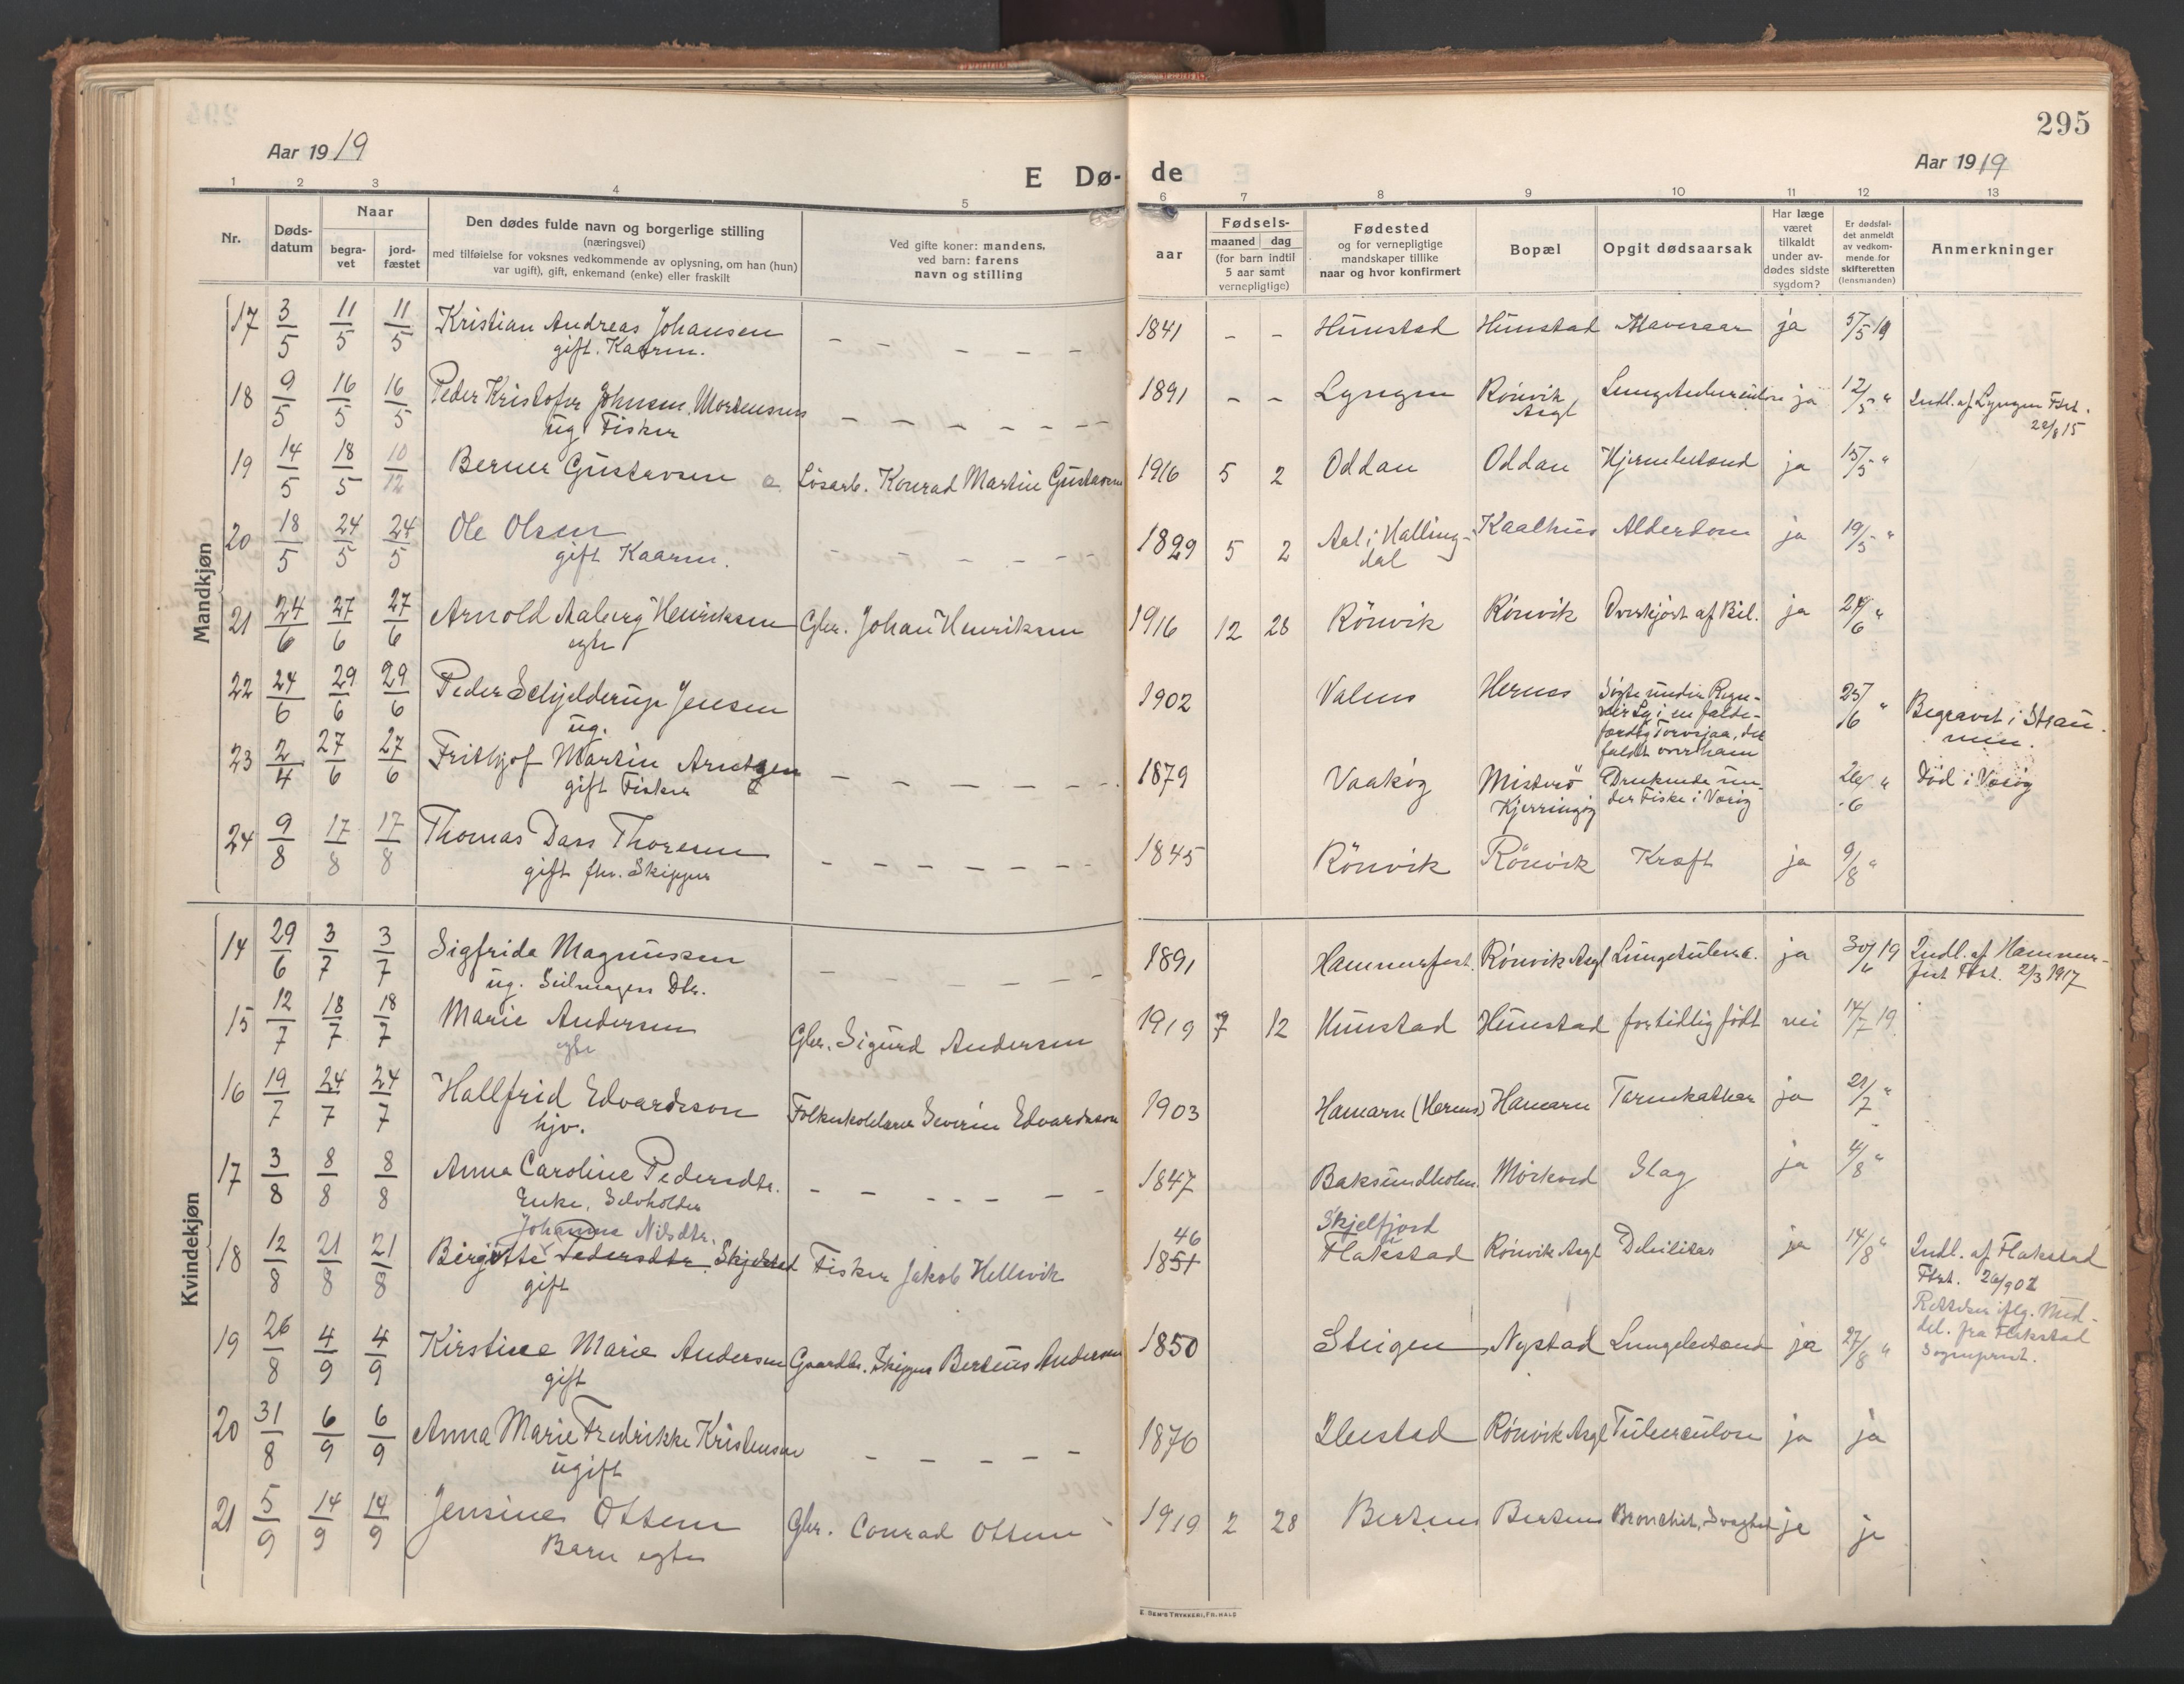 295
Aar 1919
E Dø-
de
Aar 1919
1 2 3 4 5 6 7 8 9 10 11 12 13
Nr.
Døds-
datum
Naar
begra-
vet
jord-
fæstet
Den dødes fulde navn og borgerlige stilling
(næringsvei)
med tilføielse for voksnes vedkommende av oplysning, om han (hun)
var ugift), gift, enkemand (enke) eller fraskilt
Ved gifte koner: mandens,
ved barn: farens
navn og stilling
aar
Fødsels-
maaned dag
(for barn indtil
5 aar samt
vernepligtige)
Fødested
og for vernepligtige
mandskaper tillike
naar og hvor konfirmert
Bopæl
Opgit dødsaarsak
Har læge
været
tilkaldt
under av-
dødes sidste
sygdom?
Er dødsfal-
det anmeldt
av vedkom-
mende for
skifteretten
(lensmanden)
Anmerkninger
Mandkjøn
17 3/5 11/5 11/5 Kristian Andreas Johansen - - - - - 1841 - - Hunstad Hunstad Mavesaar ja 5/5 19
gift. Kaarm.
18 9/5 16/5 16/5 Peder Kristofer Johnsen Mortensnes - - - - - - 1891 - - Lyngen Rönvik Lungetuberculose ja 12/5 " Indl. af Lyngen Fbst.
ug Fisker Asyl 22/8 15
19 14/5 18/5 10/12 Berner Gustavsen Løsarb. Konrad Martin Gustavsen 1916 5 2 Oddan Oddan Hjernebetænd ja 15/5 "
20 18/5 24/5 24/5 Ole Olsen - - - 1829 5 2 Aal i Halling- Kaalhus Alderdom ja 19/5 "
gift Kaarm. dal
21 24/6 27/6 27/6 Arnold Aaberg Henriksen Gbr. Johan Henriksen 1916 12 28 Rönvik Rönvik Overkjört af Bil. ja 24/6 "
egte
22 24/6 29/6 29/6 Peder Schjelderup Jensen 1902 Valnes Hernes Søgte under Regn-
veir Ly i en falde-
færdig Torvsjaa, det
faldt over ham 25/6 " Begravet i Strau-
men.
ug.
23 2/4 27/6 27/6 Frithjof Martin Arntzen - - - - - - 1879 Vaaköy Misterö Druknede un- 26/6 " Död i Væröy
gift Fisker Kjerringöy der Fiske i Væröy
24 9/8 17/8 17/8 Thomas Dass Thoresen - - - - - - 1845 Rönvik Rönvik Kræft ja 9/8 "
gift fhv. Skipper
Kvindekjøn
14 29/6 3/7 3/7 Sigfrida Magnussen - - - - - - 1891 Hammerfest. Rönvik Asyl Lungetuberc. ja 30/6 19 Indl. af Hammer-
ug. Seilmagers Dtr. fest Fbst. 2/3 1917
15 12/7 18/7 18/7 Marie Andersen Gbr. Sigurd Andersen 1919 7 12 Hunstad Hunstad fortidlig født nei 14/7 19
egte
16 19/7 24/7 24/7 Hallfrid Edvardsson Folkeskolelærer Severin Edvardsson 1903 Hamarn (Hernes) Hamarn Tarmkathar ja 21/7 "
hjv.
17 3/8 8/8 8/8 Anna Caroline Pedersdtr. - - - - - - - 1847 Baksundholm. Mörkved Slag ja 4/8 "
Enke, Selvholder
Johanna Nilsdtr. 46 Skjelfjord
18 12/8 21/8 21/8 Birgitte Pedersdtr. Skjelstad Fisker Jakob Hellevik 1851 Flakstad Rönvik Asyl Debilitas ja 14/8 " Indl. af Flakstad
gift Fbst. 26/9 02
Rettelser iflg. Med-
del. fra Flakstad
Sogneprest.
19 26/8 4/9 4/9 Kirstine Marie Andersen Gaardbr. Skipper Berteus Andersen 1850 Steigen Nystad Lungebetænd ja 27/8 "
gift
20 31/8 6/9 6/9 Anna Marie Fredrikke Kristensen - - - - - 1876 Ibestad Rönvik Asyl Tuberculose ja ja
ugift
21 5/9 14/9 14/9 Jensine Ottem Gbr. Conrad Ottem 1919 2 28 Bertnes Bertnes Bronchit, Svaghed ja ja
Barn egte
E. SEM'S TRYKKERI, FR.HALD